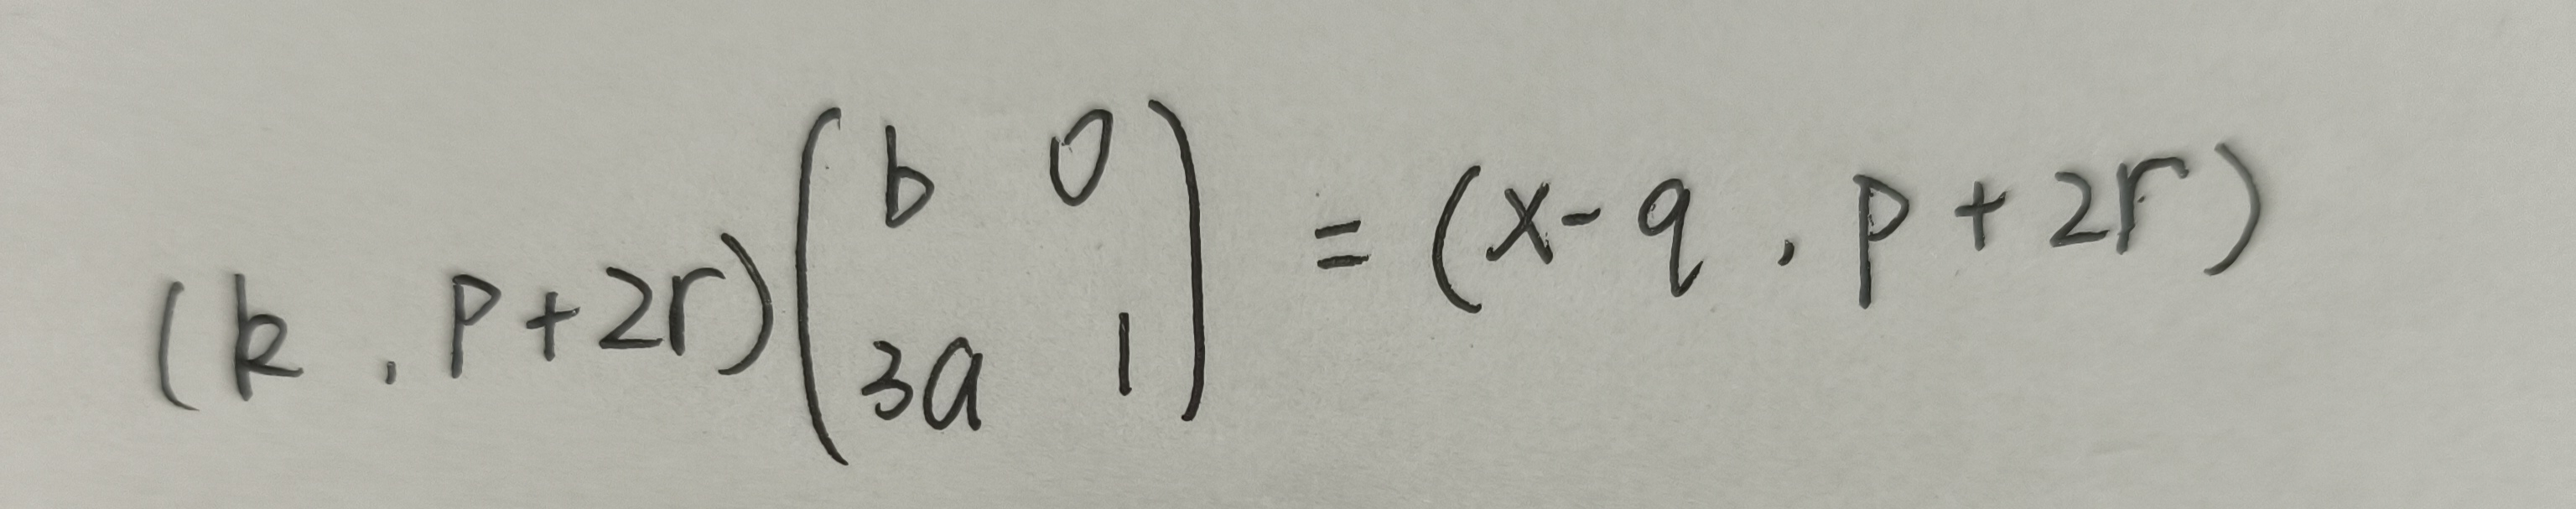 (k, p+2r) \begin{pmatrix} b & 0 \\ 3a & 1 \end{pmatrix} = (x-q, p+2r)